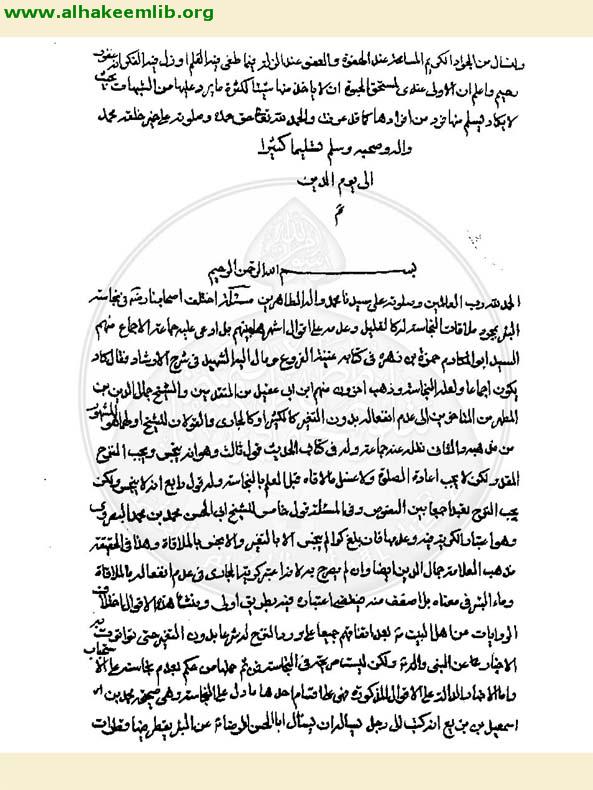 www.alhakeemlib.org
واسأل من الجواد الكريم المسامحة عند الهفوة والعفو عند الزلة فيما طغى فيه القلم او زل فيه الفكر انه غفور
رحيم واعلم ان الاولى عندي لمستحق الحبوة ان لا ياخذ منها شيئا لكثرة ما يرد عليها من الشبهات بحيث
لا يكاد يسلم منها فرد من افرادها كما قد عرفت والحمد لله حق حمده وصلوته على خير خلقه محمد
واله وصحبه وسلم تسليما كثيرا
الى يوم الدين
تم
بسم الله الرحمن الرحيم
الحمد لله رب العالمين وصلوته على سيدنا محمد واله الطاهرين مسئلة اختلف اصحابنا في نجاسة
البئر بمجرد ملاقات النجاسة له كالقليل وعدمه على اقوال اشهرها بينهم بل ادعى عليه جماعة الاجماع منهم
السيد ابو المكارم حمزة بن زهرة في كتابه غنية النزوع ومال اليه الشهيد في شرح الارشاد فقال كاد
يكون اجماعا ولعله النجاسة وذهب اخرون منهم ابن ابي عقيل من المتقدمين والشيخ جمال الدين بن
المطهر من المتاخرين الى عدم انفعاله بدون التغير كالكثير او كالجاري والقولان للشيخ اولهما هو المشهور
من مذهبه والثاني نقله عنه جماعة وله في كتاب الحديث قول ثالث وهو انه ينجس ويجب النزح
المقدر ولكن لا يجب اعادة الصلوة ولا غسل ما لاقاه قبل العلم بالنجاسة وله قول رابع انه لا ينجس ولكن
يجب النزح تعبدا جمعا بين النصوص وفي المسئلة قول خامس للشيخ ابي الحسن محمد بن محمد البصروي
وهو اعتبار الكرية فيه وعدمها فان بلغ كرا لم ينجس الا بالتغير والا نجس بالملاقاة وهذا في الحقيقة
مذهب العلامة جمال الدين ايضا وان لم يصرح به لانه اعتبر كرية الجاري في عدم انفعاله بالملاقاة
وماء البئر في معناه بل اضعف منه فيقتضي اعتباره فيه بطريق اولى ومنشأ هذه الاقوال اختلاف
الروايات عن اهل البيت بعد اتفاقهم جميعا على ورود النزح له شرعا بدون التغير حتى تواترت به
الاخبار عن النبي والائمة ولكن ليست صريحة في النجاسة فمن ثم حملها من حكم بعدم نجاسته على الاستحباب
واما الاخبار الدالة على الاقوال المذكورة فهي على اقسام احدها ما دل على النجاسة وهي صحيحة محمد بن
اسمعيل بن بزيع انه كتب الى رجل يساله ان يسال ابا الحسن الرضا عن البئر يقطر فيها قطرات